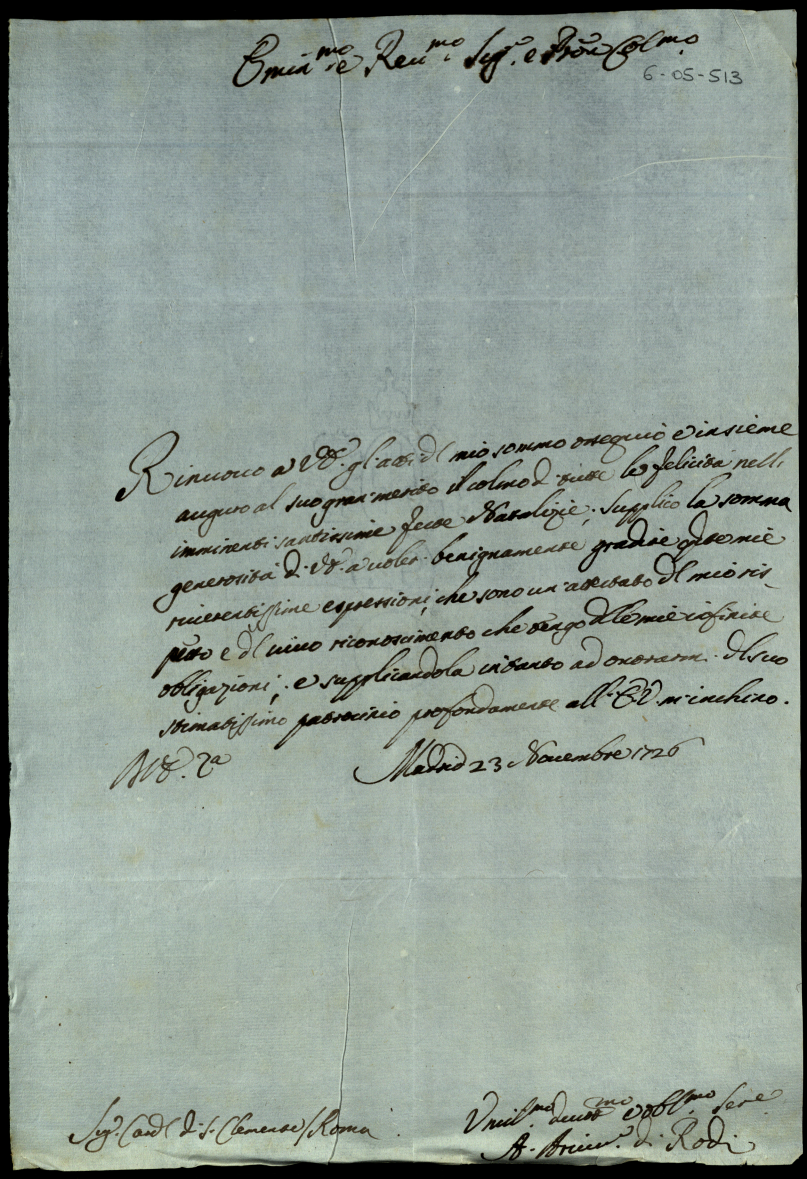 Emin.mo e Reu.mo Sig.r e Pron Col.mo
6-05-513
Rinuouo a V.E. gl'atti d'l mio sommo ossequio e insieme
auguro al suo gran merito il colmo di tutte le felicità nelle
imminenti santissime feste Natalizie; supplico la somma
generosità di V.E. a uoler benignamente gradire queste mie
riuerentissime espressioni, che sono un'attestato d'l mio ris-
petto e d'l uiuo riconoscimento che tengo d'le mie infinite
obligazioni; e supplicandola intanto ad onorarmi d'l suo
stimatissimo patrocinio profondamente all'E.V. m'inchino.
Madrid 23 Nouembre 1726
Sig.r Card.l di S. Clemente / Roma
Vmil.mo deuot.mo e obl.mo Ser.e
A. Arciu.o di Rodi